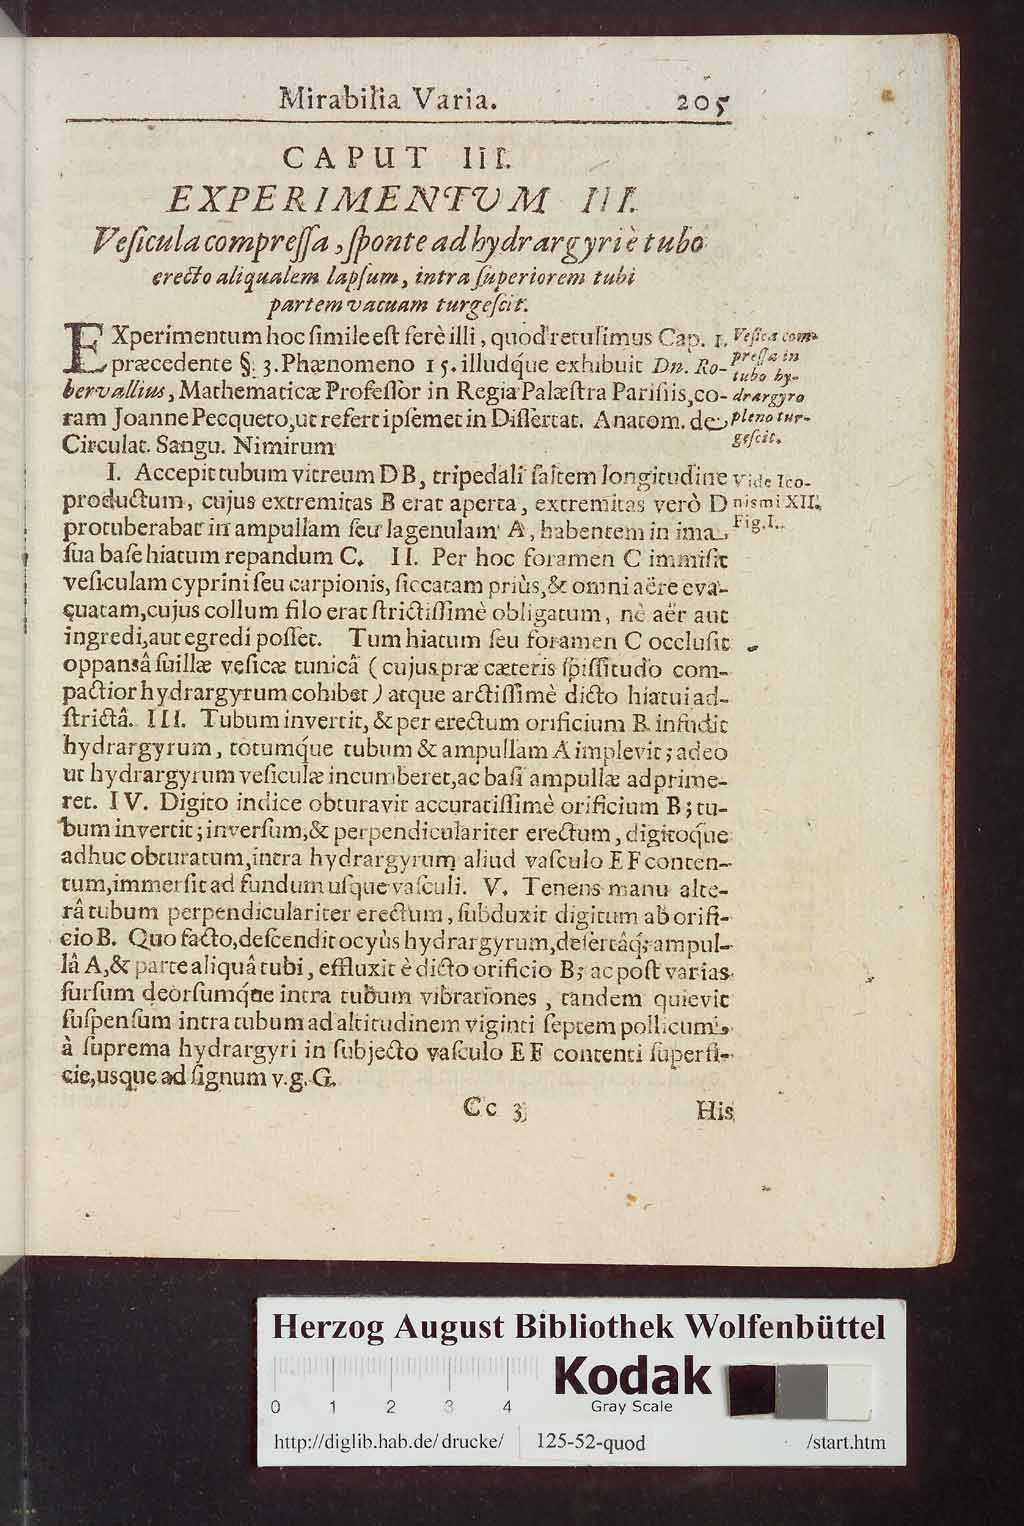 Mirabilia Varia. 205
CAPUT III.
EXPERIMENTUM III.
Veſicula compreſſa, ſponte ad hydrargyri è tubo
erecto aliqualem lapſum, intra ſuperiorem tubi
partem vacuam turgeſcit.
EXperimentum hoc ſimile eſt ferè illi, quod retulimus Cap. 1.
præcedente §. 3. Phænomeno 15. illudq́ue exhibuit Dn. Ro-
bervallius, Mathematicæ Profeſſor in Regia Palæſtra Pariſiis, co-
ram Joanne Pecqueto, ut refert ipſemet in Diſſertat. Anatom. de
Circulat. Sangu. Nimirum
Veſica com-
preſſa in
tubo hy-
drargyro
pleno tur-
geſcit.
I. Accepit tubum vitreum DB, tripedali ſaltem longitudine
productum, cujus extremitas B erat aperta, extremitas verò D
protuberabat in ampullam ſeu lagenulam A, habentem in ima
ſua baſe hiatum repandum C. II. Per hoc foramen C immiſit
veſiculam cyprini ſeu carpionis, ſiccatam priùs, & omni aëre eva-
cuatam, cujus collum filo erat ſtrictiſſimè obligatum, nè aër aut
ingredi, aut egredi poſſet. Tum hiatum ſeu foramen C occluſit
oppansâ ſuillæ veſicæ tunicâ (cujus præ cæteris ſpiſſitudo com-
pactior hydrargyrum cohibet) atque arctiſſimè dicto hiatui ad-
ſtrictâ. III. Tubum invertit, & per erectum orificium B infudit
hydrargyrum, totumq́ue tubum & ampullam A implevit; adeo
ut hydrargyrum veſiculæ incumberet, ac baſi ampullæ adprime-
ret. IV. Digito indice obturavit accuratiſſimè orificium B; tu-
bum invertit; inverſum, & perpendiculariter erectum, digitoque
adhuc obturatum, intra hydrargyrum aliud vaſculo EF conten-
tum, immerſit ad fundum uſque vaſculi. V. Tenens manu alte-
râ tubum perpendiculariter erectum, ſubduxit digitum ab orifi-
cio B. Quo facto, deſcendit ocyùs hydrargyrum, deſertâq́; ampul-
lâ A, & parte aliquâ tubi, effluxit è dicto orificio B; ac poſt varias
ſurſum deorſumq́ue intra tubum vibrationes, tandem quievit
ſuſpenſum intra tubum ad altitudinem viginti ſeptem pollicum,
à ſuprema hydrargyri in ſubjecto vaſculo EF contenti ſuperfi-
cie, usque ad ſignum v.g. G.
Vide Ico-
nismi XII.
Fig. I.
Cc 3 His
Herzog August Bibliothek Wolfenbüttel
0 1 2 3 4
Kodak
Gray Scale
http://diglib.hab.de/drucke/ 125-52-quod /start.htm